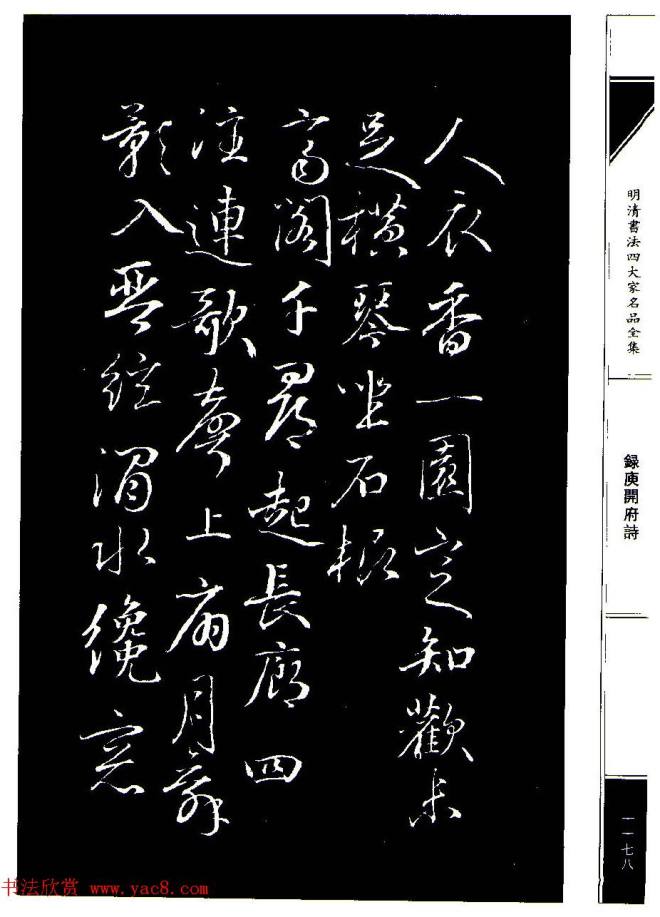 人衣香一園定知歡未
足橫琴坐石根
高閣千尋起長廊四
注連歌聲上扇月舞
影入琴絃澗水纔窓
明清書法四大家名品全集
録庾開府詩
一一七八
书法欣赏 www.yac8.com